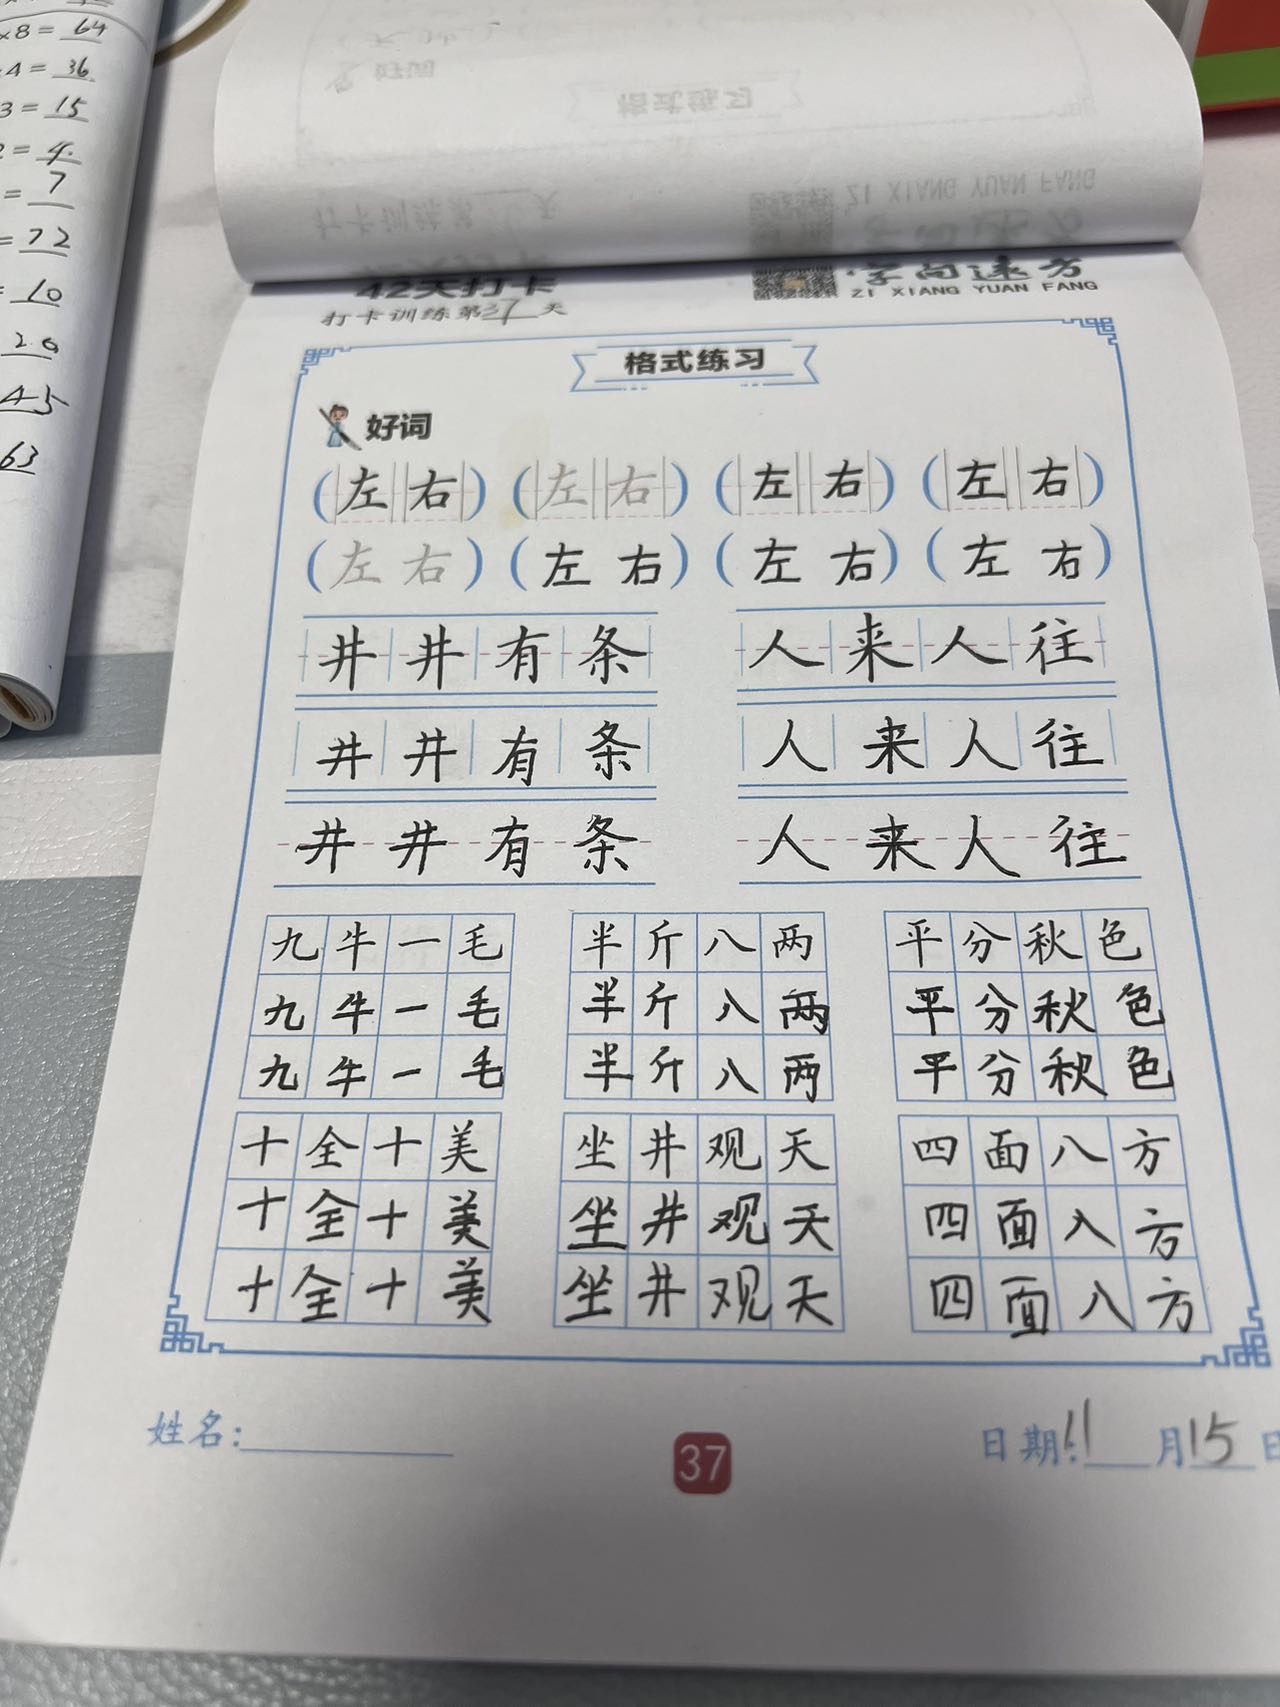 ×8=64
4=36
3=15
2=4
=7
=72
=10
20
45
63
42天打卡
打卡训练第37天
字向速方
ZI XIANG YUAN FANG
格式练习
好词
(左右) (左右) (左右) (左右)
(左右) (左右) (左右) (左右)
井井有条 人来人往
井井有条 人来人往
井井有条 人来人往
九牛一毛 半斤八两 平分秋色
九牛一毛 半斤八两 平分秋色
九牛一毛 半斤八两 平分秋色
十全十美 坐井观天 四面八方
十全十美 坐井观天 四面八方
十全十美 坐井观天 四面八方
姓名:
37
日期:11月15日